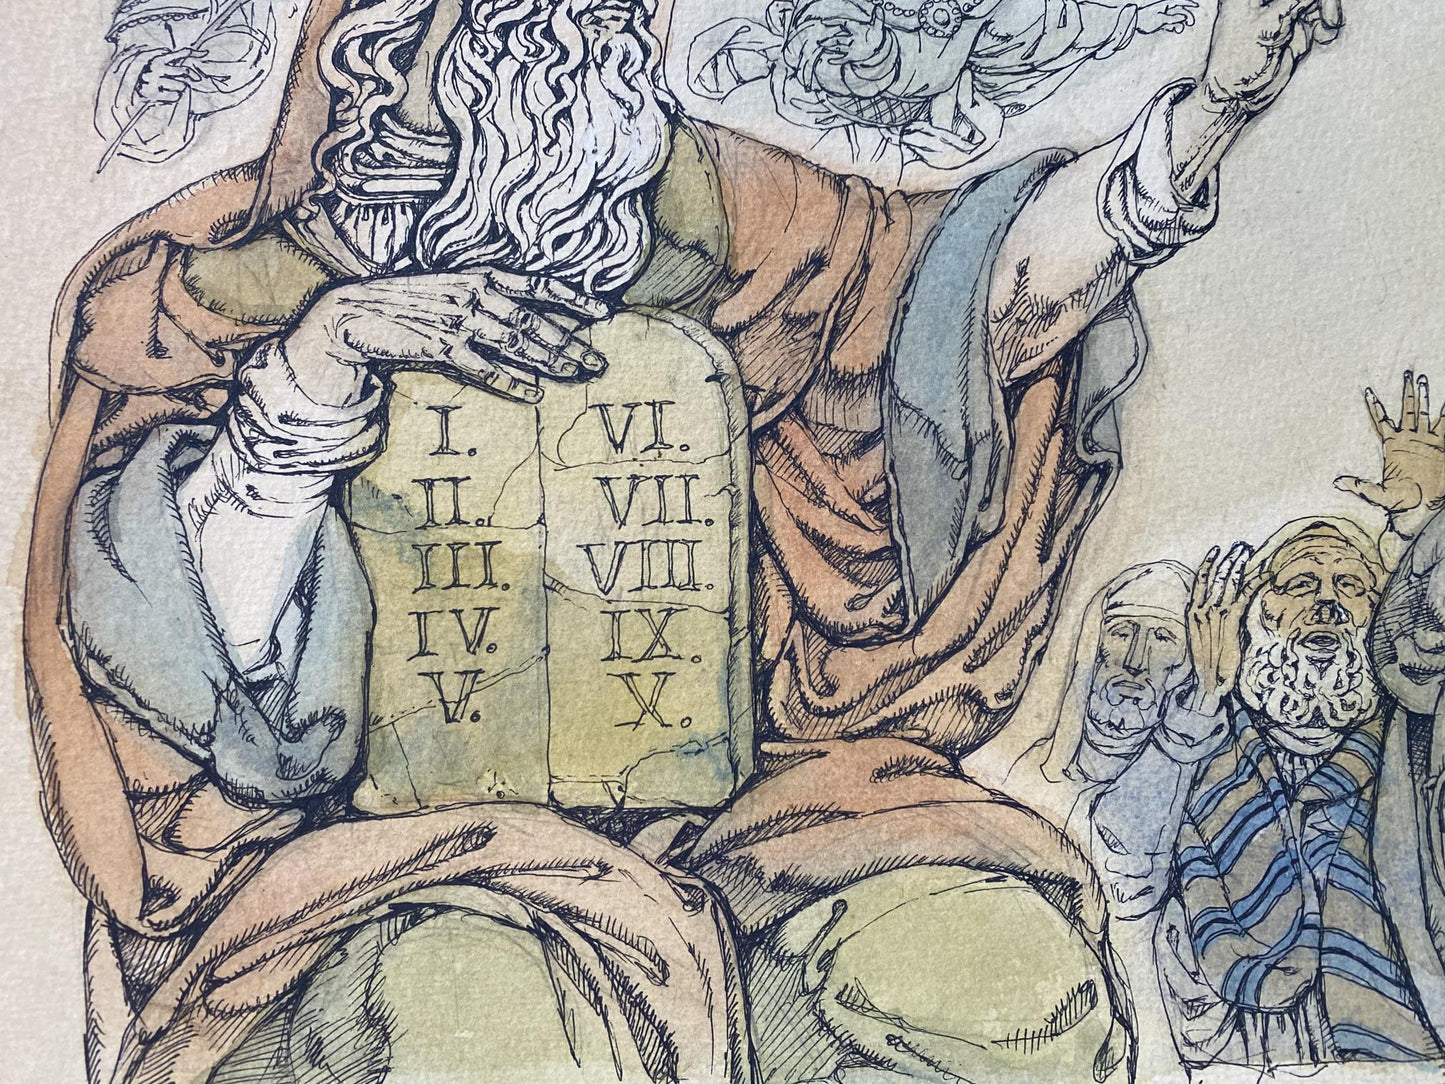 I. VI.
II. VII.
III. VIII.
IV. IX.
V. X.